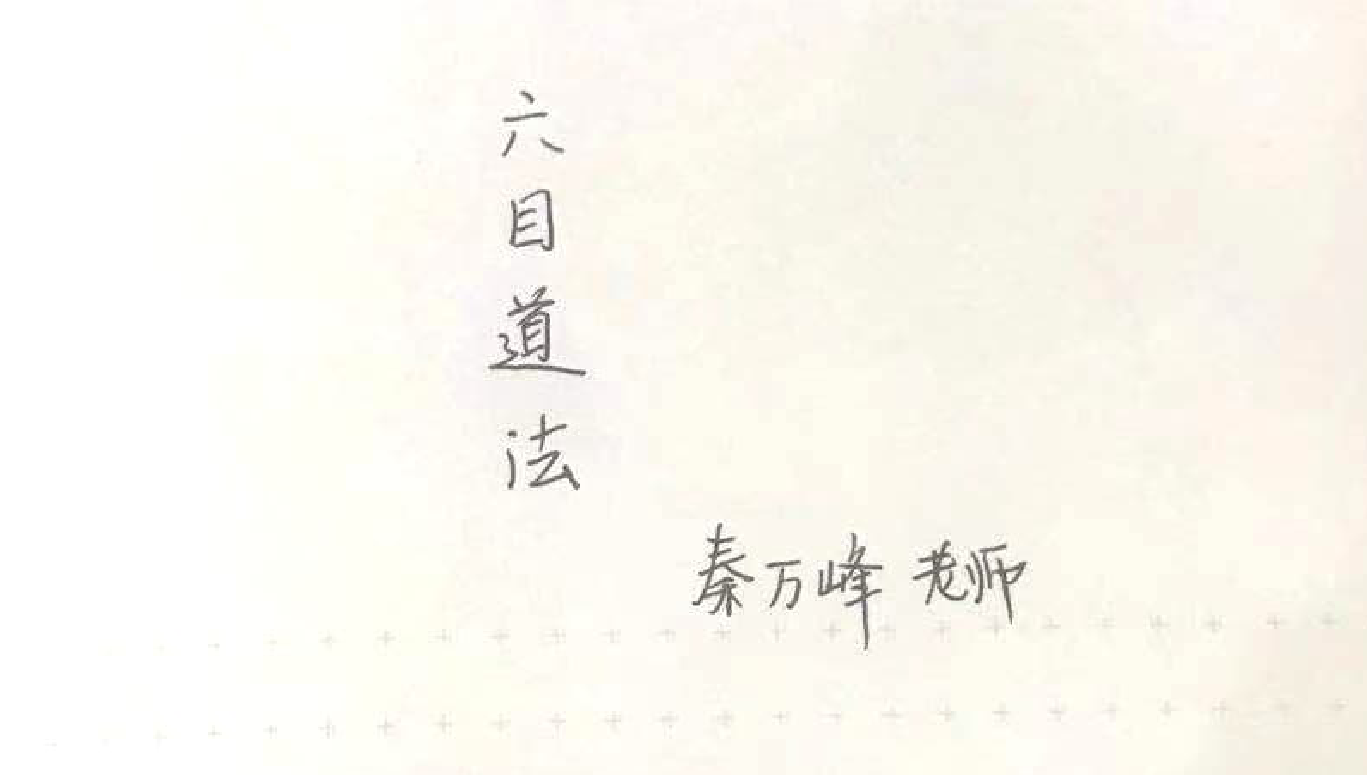 六目道法
秦万峰 老师